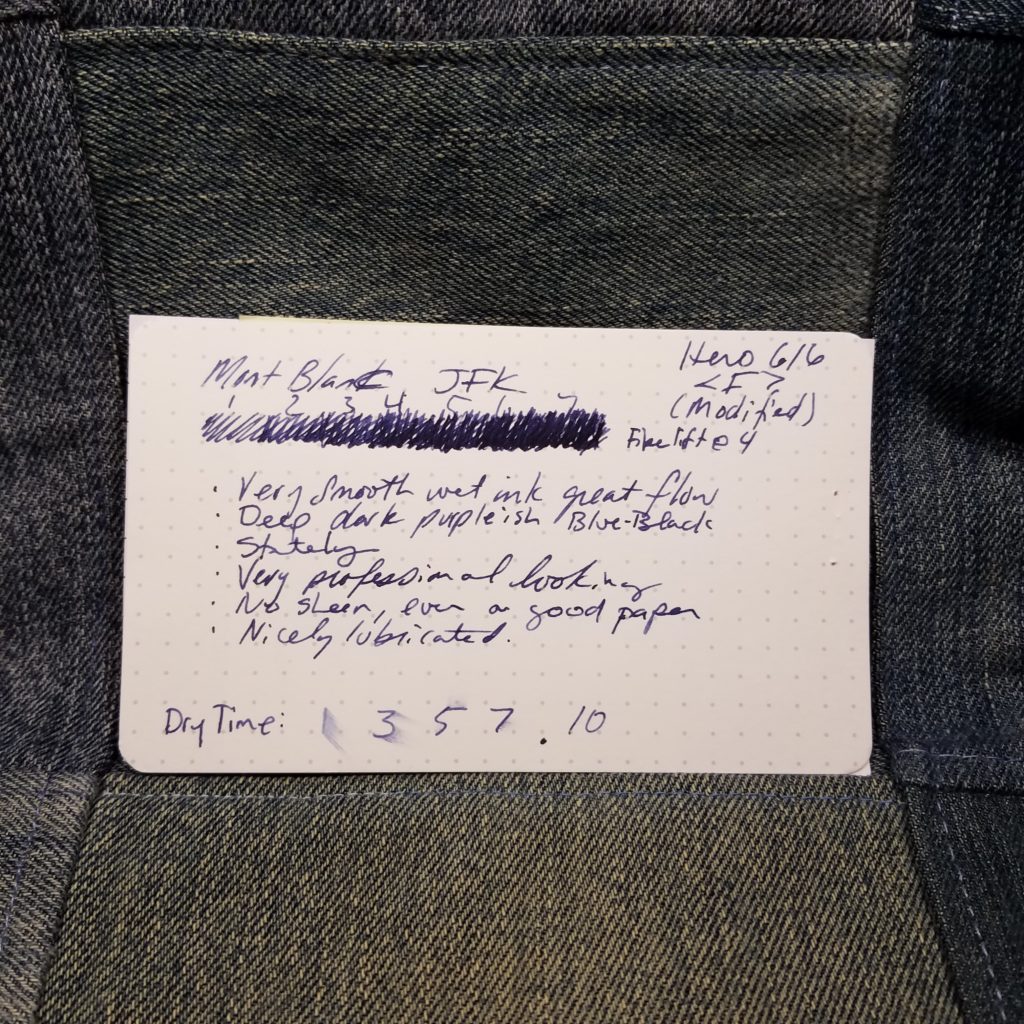 Mont Blanc JFK
Hero 616
<F>
(Modified)
1 2 3 4 5 6 7
Fiberlift @ 4
· Very smooth wet ink great flow
· Deep dark purpleish Blue-Black
· Stately
· Very professional looking
· No sheen, even on good paper
· Nicely lubricated.
Dry Time: 1 3 5 7 . 10